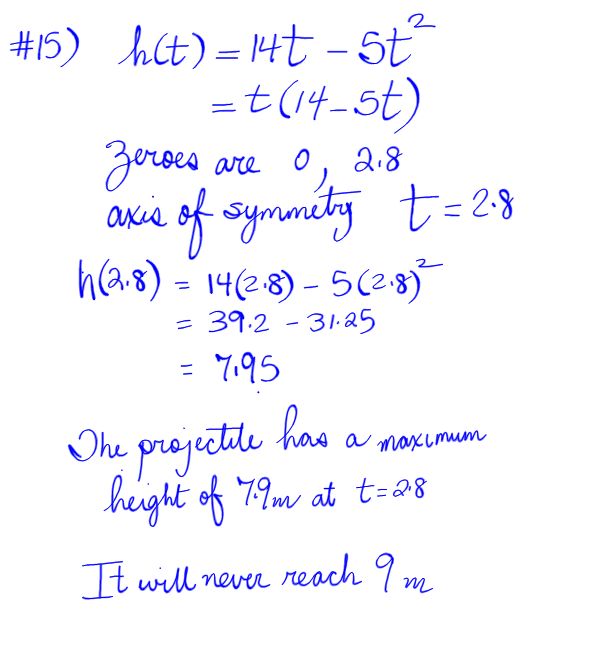 #15) h(t) = 14t - 5t²
= t(14-5t)
Zeroes are 0, 2.8
axis of symmetry t = 2.8
h(2.8) = 14(2.8) - 5(2.8)²
= 39.2 - 31.25
= 7.95
The projectile has a maximum
height of 7.9m at t=2.8
It will never reach 9 m